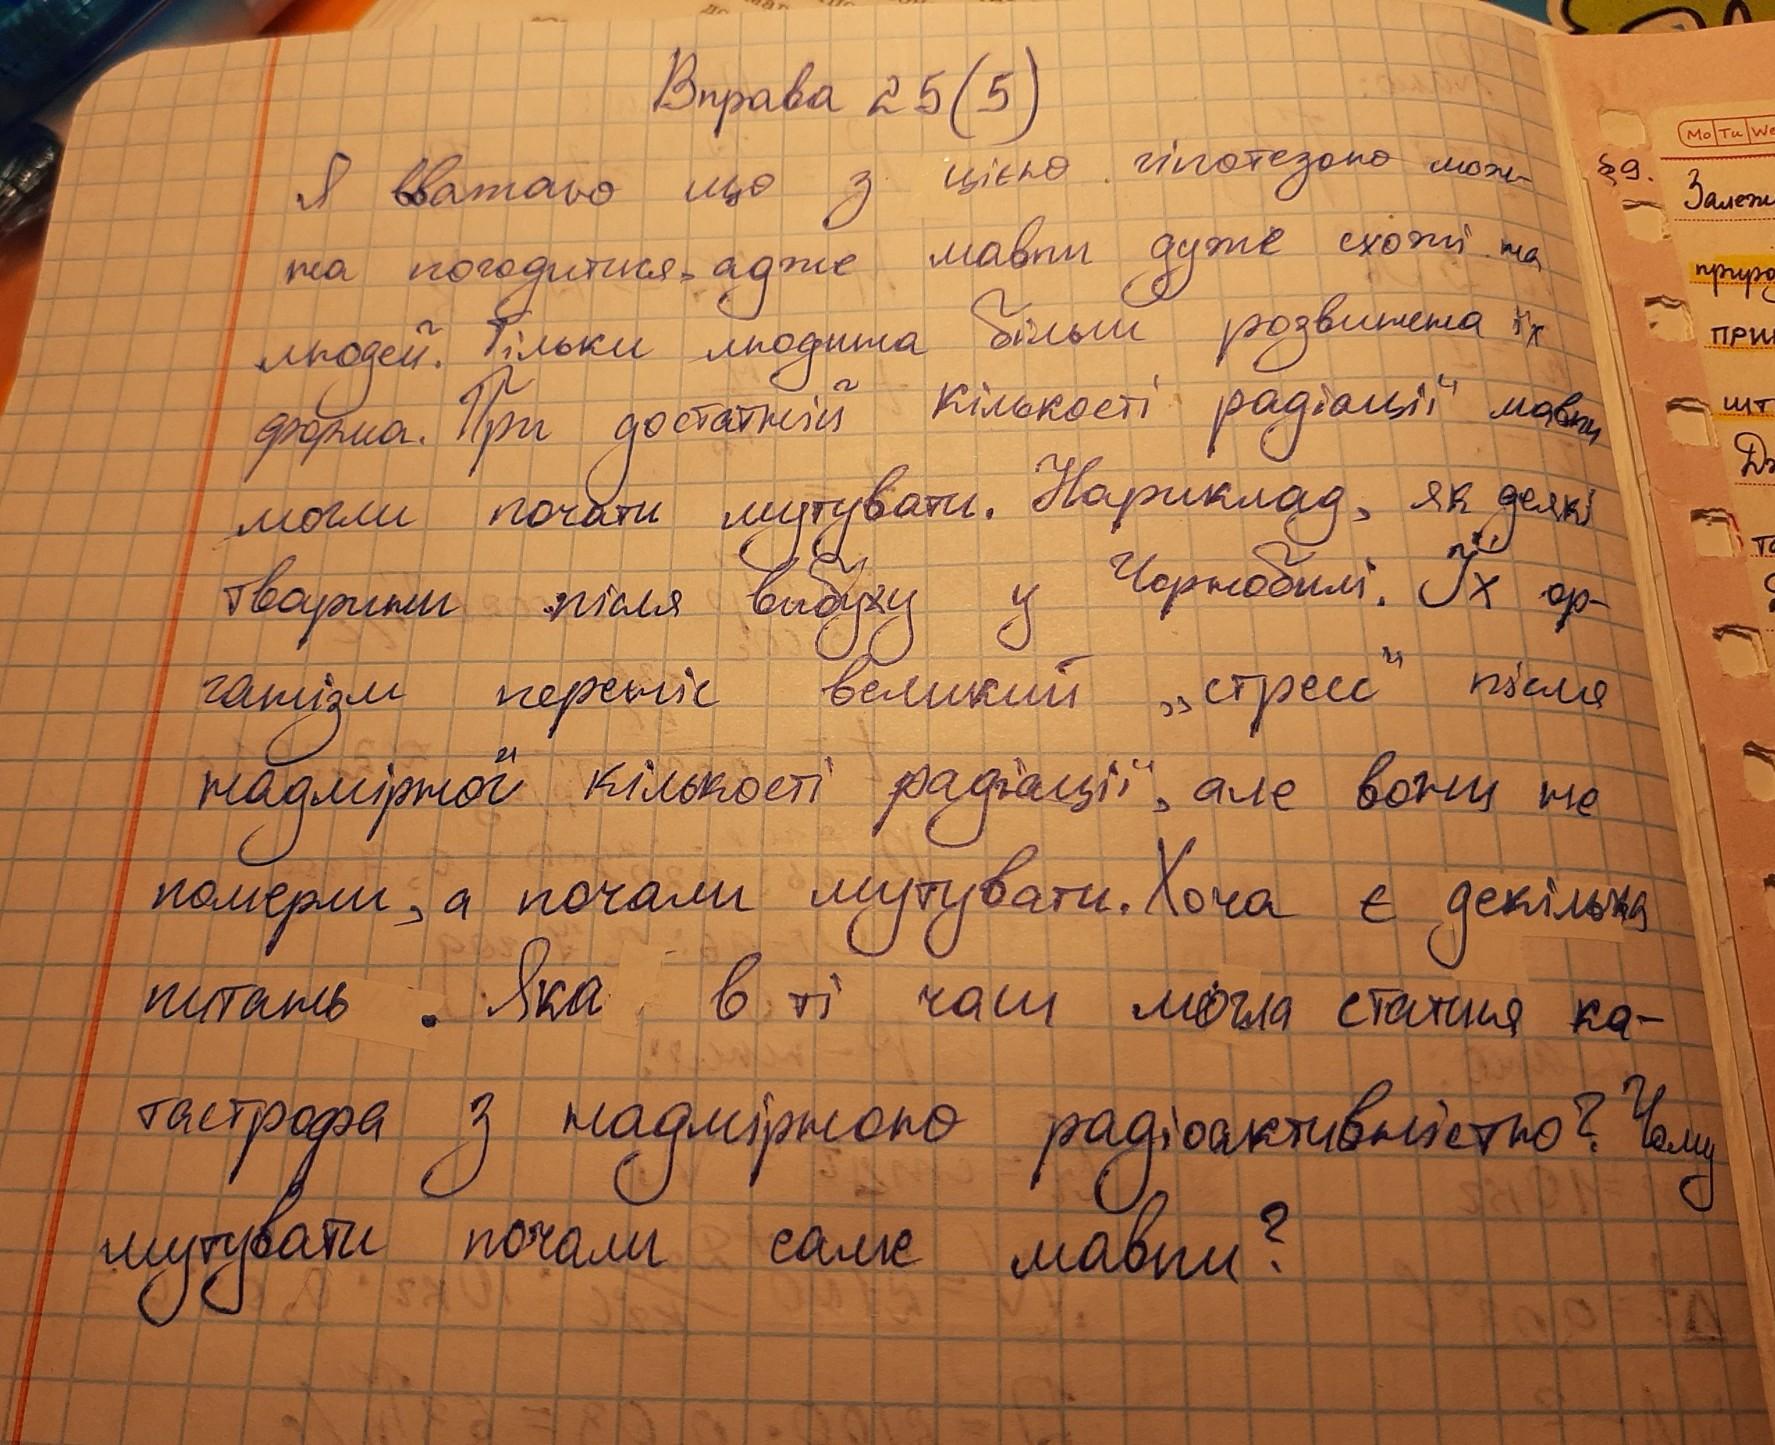 Вправа 25(5)
Я вважаю що з цією гіпотезою мож-
на погодитися, адже мавпи дуже схожі на
людей. Тільки людина більш розвинена їх
форма. При достатній кількості радіації мавпи
могли почати мутувати. Наприклад, як деякі
тварини після вибуху у Чорнобилі. Їх ор-
ганізм переніс великий „стрес" після
надмірної кількості радіації, але вони не
померли, а почали мутувати. Хоча є декілька
питань. Яка в ті часи могла статися ка-
тастрофа з надмірною радіоактивністю? Чому
мутувати почали саме мавпи?
Mo Tu We
§9.